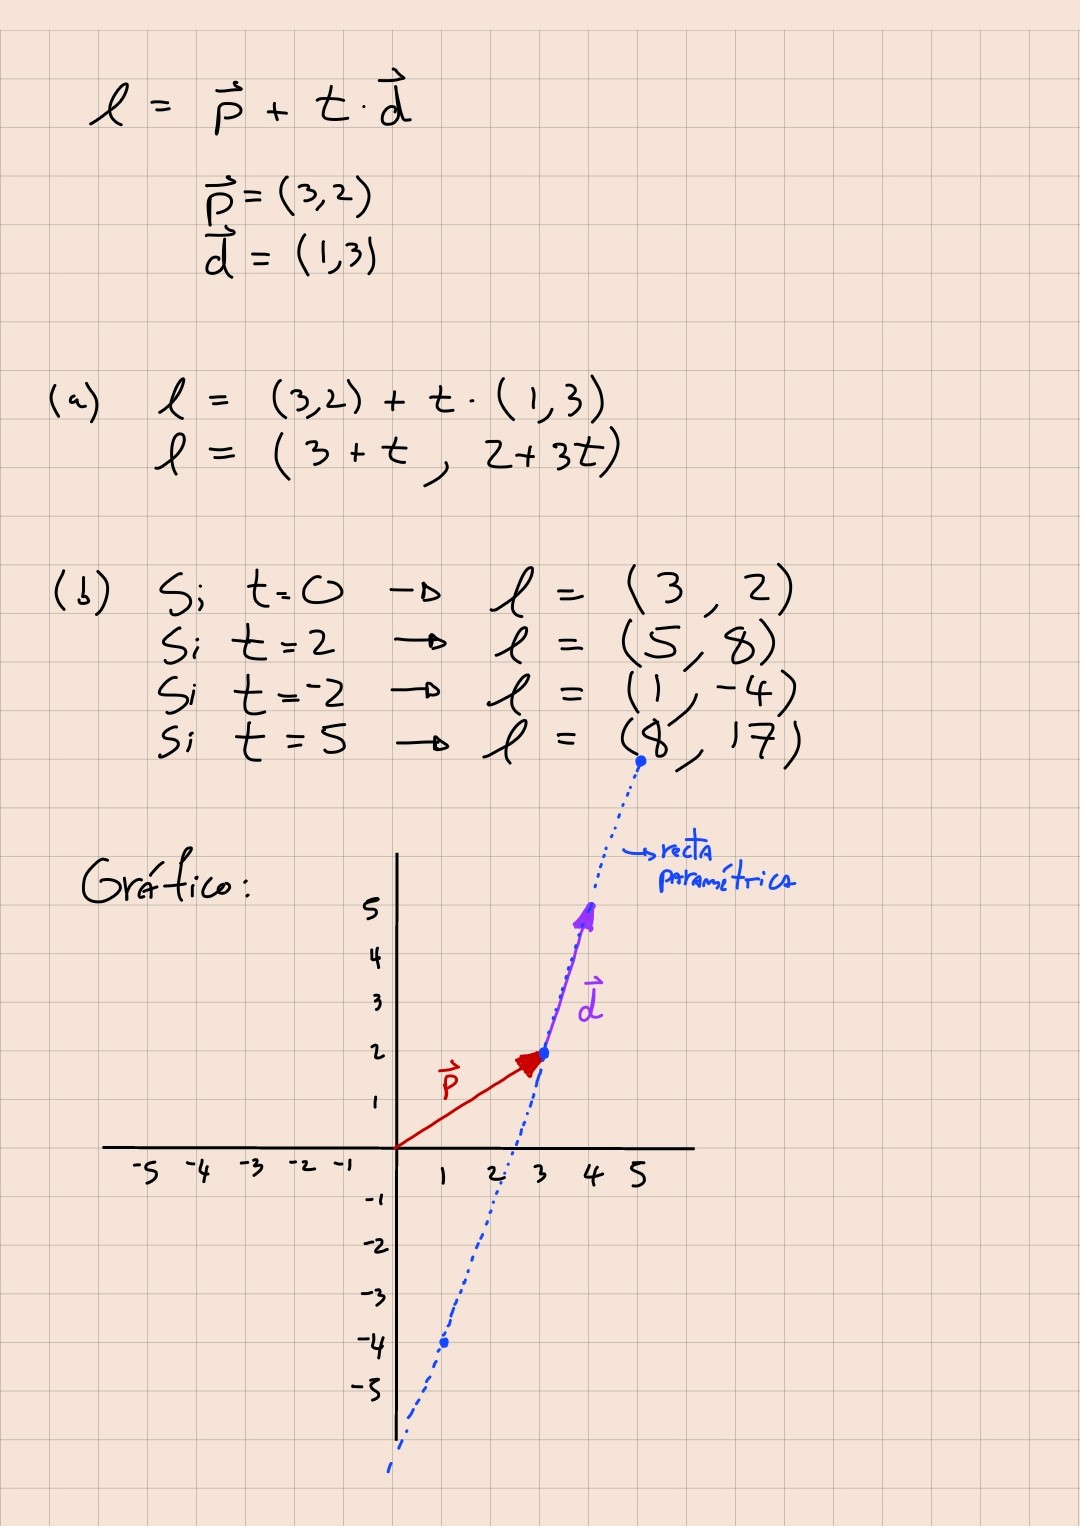 l = p⃗ + t · d⃗
p⃗ = (3,2)
d⃗ = (1,3)
(a) l = (3,2) + t · (1,3)
l = (3 + t , 2 + 3t)
(b) Si t = 0 → l = (3 , 2)
Si t = 2 → l = (5 , 8)
Si t = -2 → l = (1 , -4)
Si t = 5 → l = (8 , 17)
→ recta
paramétrica
Gráfico:
5
4
3
2
1
d⃗
p⃗
-5 -4 -3 -2 -1 1 2 3 4 5
-1
-2
-3
-4
-5